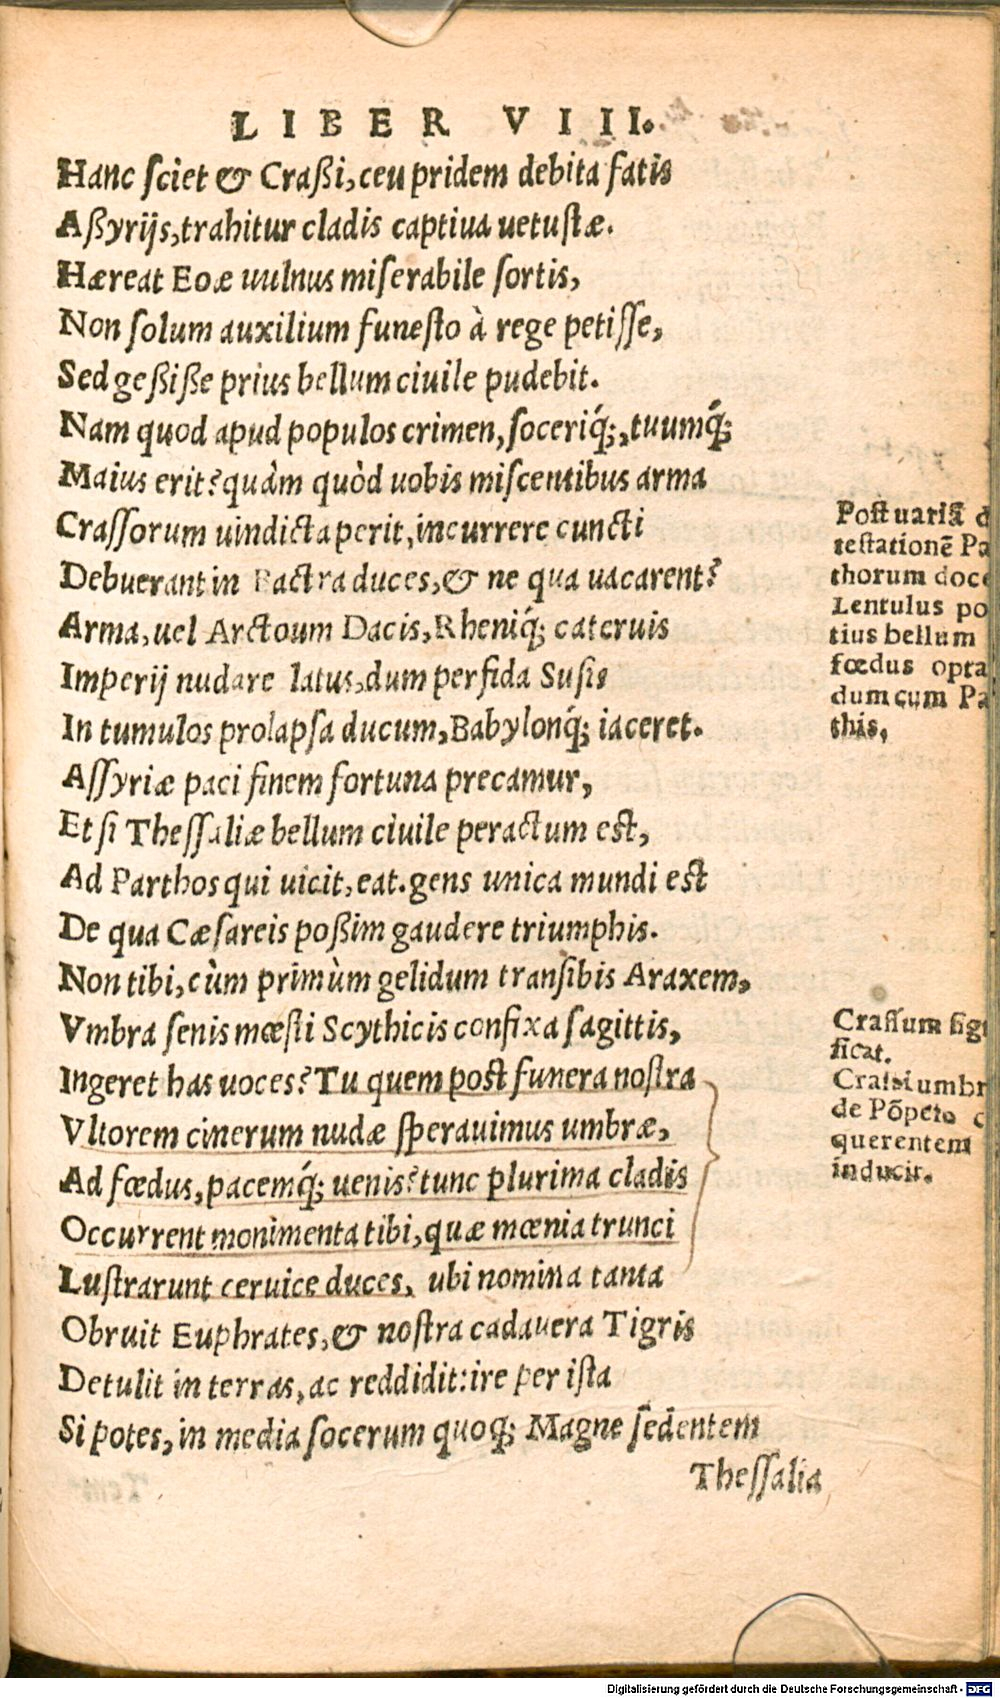 LIBER VIII.
Hanc sciet & Craßi, ceu pridem debita fatis
Aßyrijs, trahitur cladis captiua uetustæ.
Hæreat Eoæ uulnus miserabile sortis,
Non solum auxilium funesto à rege petisse,
Sed geßiße prius bellum ciuile pudebit.
Nam quod apud populos crimen, soceriq́;, tuumq́;
Maius erit? quàm quòd uobis miscentibus arma
Crassorum uindicta perit, incurrere cuncti
Debuerant in Bactra duces, & ne qua uacarent?
Arma, uel Arctoum Dacis, Rheniq́; cateruis
Imperij nudare latus, dum perfida Susis
In tumulos prolapsa ducum, Babylonq́; iaceret.
Assyriæ paci finem fortuna precamur,
Et si Thessaliæ bellum ciuile peractum est,
Ad Parthos qui uicit, eat. gens unica mundi est
De qua Cæsareis poßim gaudere triumphis.
Non tibi, cùm primùm gelidum transibis Araxem,
Vmbra senis mœsti Scythicis confixa sagittis,
Ingeret has uoces? Tu quem post funera nostra
Vltorem cinerum nudæ sperauimus umbræ,
Ad fœdus, pacemq́; uenis? tunc plurima cladis
Occurrent monimenta tibi, quæ mœnia trunci
Lustrarunt ceruice duces, ubi nomina tanta
Obruit Euphrates, & nostra cadauera Tigris
Detulit in terras, ac reddidit: ire per ista
Si potes, in media socerum quoq; Magne sedentem
Thessalia
Post uariã d
testationẽ Pa
thorum doce
Lentulus po
tius bellum
fœdus opta
dum cum Pa
this.
Crassum sig
ficat.
Crassi umbr
de Põpeio c
querentem
inducit.
Digitalisierung gefördert durch die Deutsche Forschungsgemeinschaft - DFG